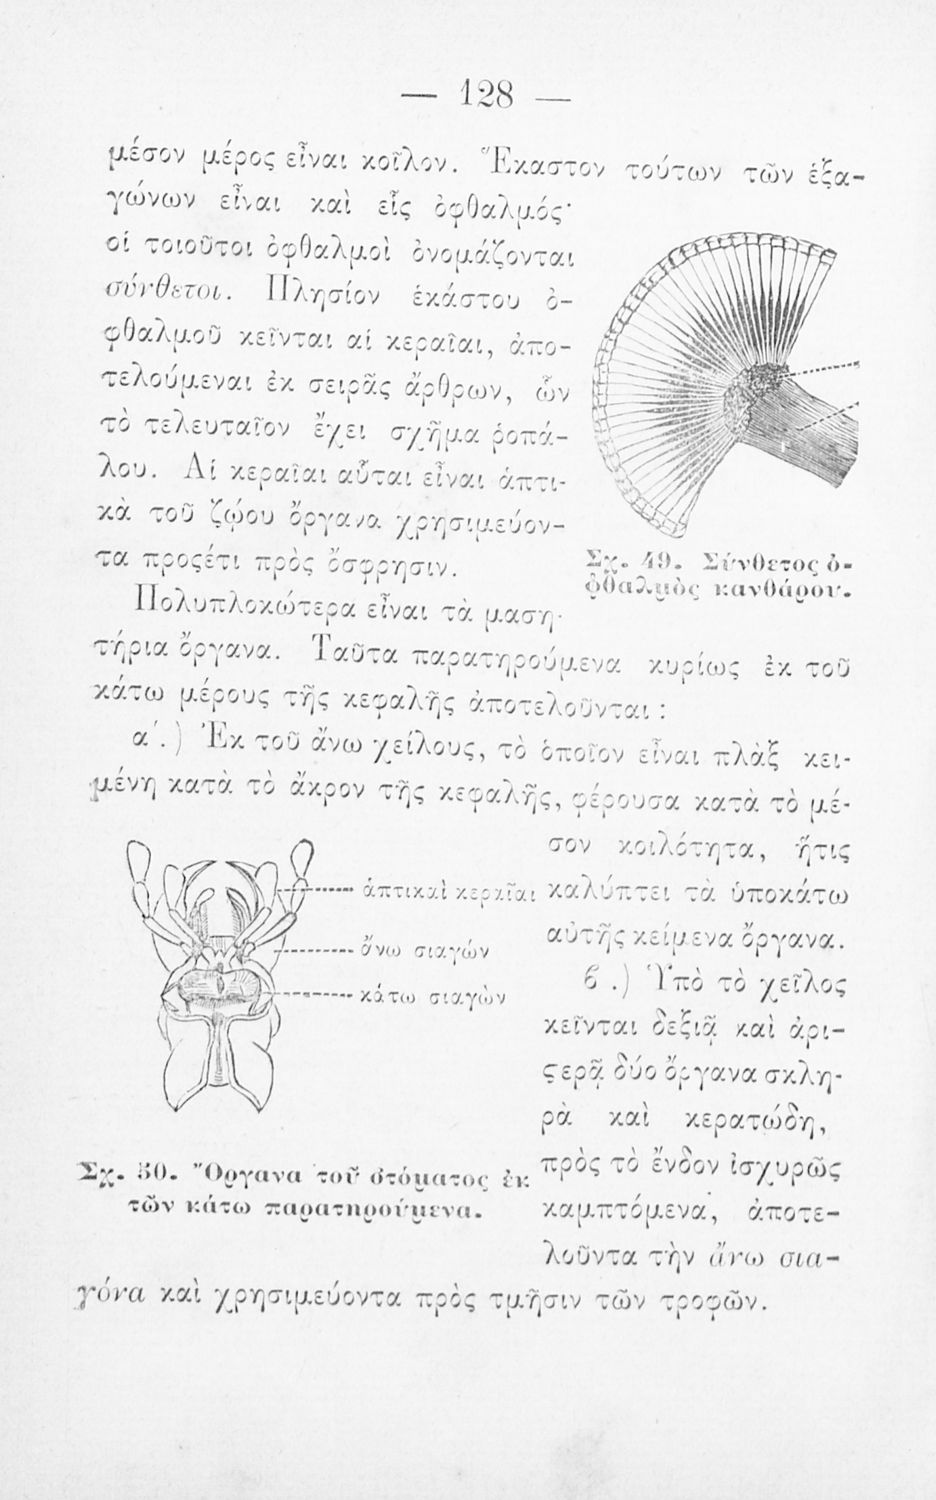 — 128 —
μέσον μέρος εἶναι κοῖλον. Ἕκαστον τούτων τῶν ἑξα-
γώνων εἶναι καὶ εἷς ὀφθαλμός·
οἱ τοιοῦτοι ὀφθαλμοὶ ὀνομάζονται
σύνθετοι. Πλησίον ἑκάστου ὀ-
φθαλμοῦ κεῖνται αἱ κεραῖαι, ἀπο-
τελούμεναι ἐκ σειρᾶς ἄρθρων, ὧν
τὸ τελευταῖον ἔχει σχῆμα ῥοπά-
λου. Αἱ κεραῖαι αὗται εἶναι ἁπτι-
κὰ τοῦ ζῴου ὄργανα χρησιμεύον-
τα προςέτι πρὸς ὄσφρησιν.
Σχ. 49. Σύνθετος ὀ-
φθαλμὸς κανθάρου.
Πολυπλοκώτερα εἶναι τὰ μαση-
τήρια ὄργανα. Ταῦτα παρατηρούμενα κυρίως ἐκ τοῦ
κάτω μέρους τῆς κεφαλῆς ἀποτελοῦνται :
α΄.) Ἐκ τοῦ ἄνω χείλους, τὸ ὁποῖον εἶναι πλὰξ κει-
μένη κατὰ τὸ ἄκρον τῆς κεφαλῆς, φέρουσα κατὰ τὸ μέ-
σον κοιλότητα, ἥτις
καλύπτει τὰ ὑποκάτω
αὐτῆς κείμενα ὄργανα.
ϐ΄.) Ὑπὸ τὸ χεῖλος
κεῖνται δεξιᾷ καὶ ἀρι-
ϛερᾷ δύο ὄργανα σκλη-
ρὰ καὶ κερατώδη,
πρὸς τὸ ἔνδον ἰσχυρῶς
καμπτόμενα, ἀποτε-
λοῦντα τὴν ἄνω σια-
γόνα καὶ χρησιμεύοντα πρὸς τμῆσιν τῶν τροφῶν.
ἁπτικαὶ κεραῖαι
ἄνω σιαγών
κάτω σιαγὼν
Σχ. 50. Ὄργανα τοῦ στόματος ἐκ
τῶν κάτω παρατηρούμενα.